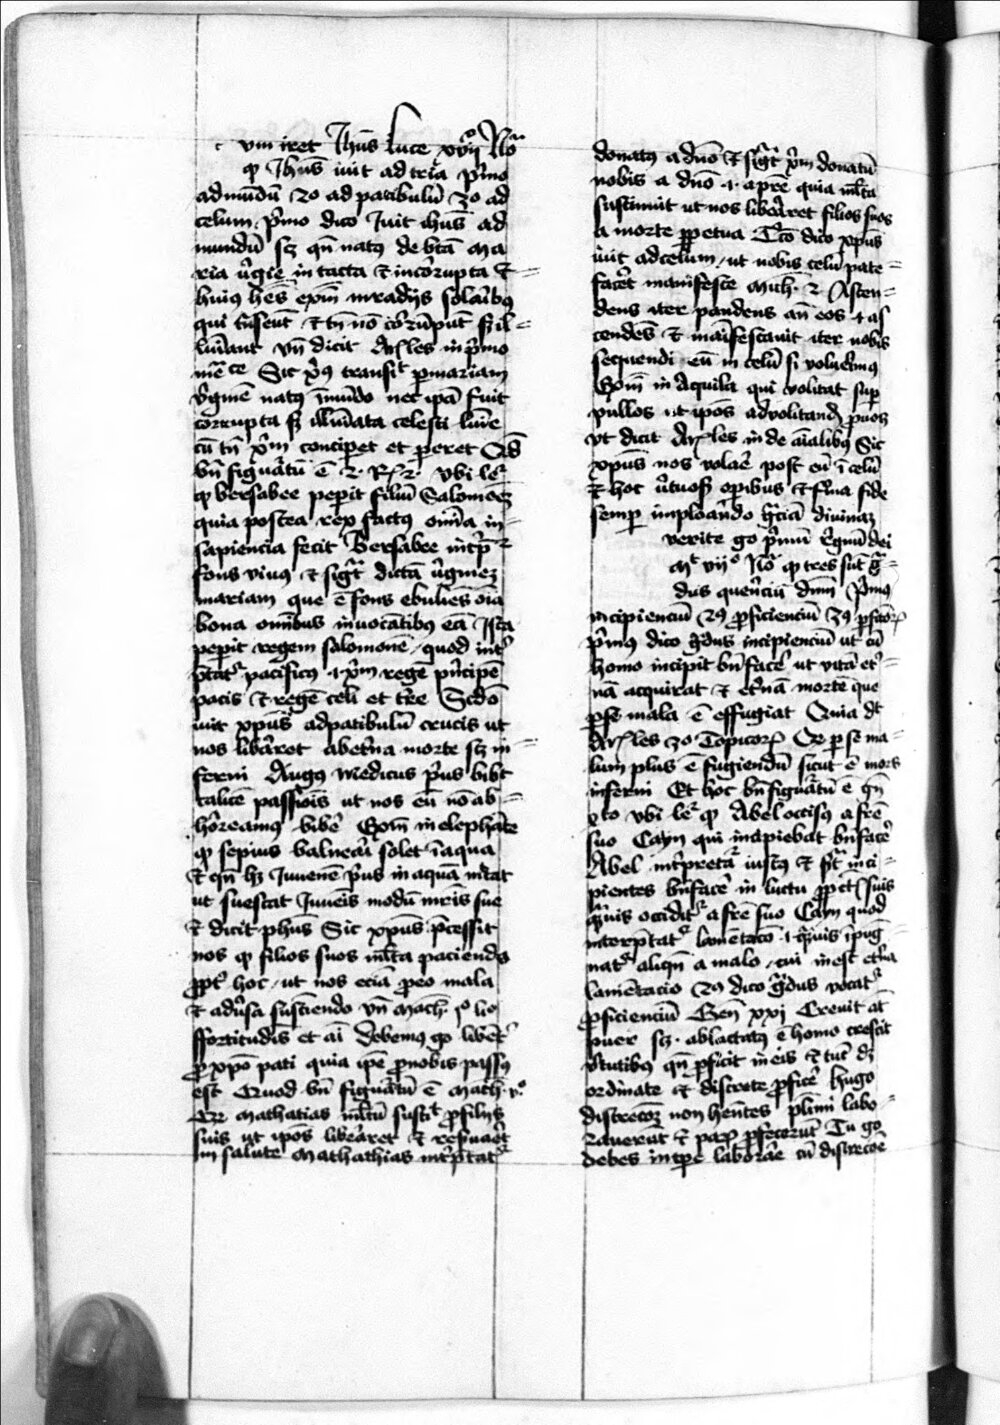 vm iret Jhūs luce xvij No
ꝙ Jhūs iuit ad tria pͥmo
ad mūdū 2o ad patibulū 3o ad
celum pͥmo dico Juit ihūs ad
mundū scz qn̄ natꝰ de btā ma
ria v̓gīe in tacta ⁊ incorrupta ⁊
huiꝰ hēs exm̄ in radijs solaribꝰ
qui tͣnseūt ⁊ tn̄ nō corrūpūt sz il-
lumāt vn̄ dicit Ar̄les in pͥmo
Sic xp̄ꝰ transit ꝑ mariam
v̓ginē natꝰ in mūdo nec ip̄a fuit
corrupta sz illūīata celesti lumīe
cū tn̄ xp̄m conciperet et pareret Qd̄
bn̄ figuratū ē 2. Rꝝ 2. vbi leg̓
ꝙ bersabee peperit filiū Salomōez
quia postea rex factꝰ omīa in
sapiencia fecit Bersabee int̓p̄r
fons viuꝰ ⁊ sigͣt dictā v̓ginez
mariam que ē fons ebuliēs oīa
bona omībus inuocātibꝰ eā Ista
peperit regem salomonē quod int̓
p̄tatͬ pacificꝰ .i. xp̄m regē pͥncipē
pacis ⁊ regē celi et tr̄e Scdō
iuit xp̄us ad patibulū crucis ut
nos lib̓aret ab et̓na morte scz in-
ferni Augꝰ medicus pͥus bibit
calicē passiōis ut nos eū nō ab-
horreamꝰ bibe̓ Exm̄ in elephāte
ꝙ sepius balneari solet ī aqua
⁊ qn̄ hz Juuenē pͥus in aquā intͣt
ut suescat Juuēis modū mr̄is sue
⁊ dicit ph̄us Sic xp̄us p̄cessit
nos ꝙ filios suos ml̄ta paciendo
ꝓpt̓ hoc ut nos eciā ꝓ eo mala
⁊ adu̓sa sustiendo vn̄ Mach̄. po lio
ffortitudīs et aī Debemꝰ go libēt̓
ꝓ xp̄o pati quia ip̄e ꝓ nobis passꝰ
est Quod bn̄ figuratū ē Mach̄. po
Qꝛ mathatias ml̄tū sustīt ꝓ filijs
suis ut ip̄os lib̓aret ⁊ reseruaret
in salute Mathathias int̓p̄tatͬ
donatꝰ a dn̄o ⁊ sigͣt xp̄m donatū
nobis a dn̄o .i. a pr̄e quia ml̄ta
sustinuit ut nos lib̓aret filios suos
a morte ꝑpetua Tc̄o dico xp̄us
iuit ad celum ut nobis celū pate-
facet manifeste Mich̄. 2 Ascen-
dens iter pandens an̄ eos .i. as
cendēs ⁊ māifestauit iter nobis
sequendi eū in celū si voluerimꝰ
Exm̄ in Aquila qui volitat suꝑ
pullos ut ip̄os ad volitandū ꝓuocet
vt dicit Ar̄les in de aīalibꝰ Sic
xp̄us nos volare post eū ī celū
⁊ hoc v̓tuosis oꝑibus ⁊ firma fide
semꝑ implorando gͣciā diuinaz
verite go pͥmū regnū dei
Mt̓ vijo No ꝙ tres sūt gͣ-
dus querenciū dnm̄ Pͥmꝰ
incipienciū 2ꝰ ꝓficienciū 3ꝰ ꝑfectorꝝ
Pͥmꝰ dico gͣdus incipienciū ut cū
homo incipit bn̄facere ut vitā et̓-
nā acquirat ⁊ et̓nā mortē que
ꝑ se mala ē effugiat Quia dt̄
Ar̄les 3o Topicorꝝ Qꝛ ꝑ se ma-
lum plus ē fugiendū sicut ē mors
inferni Et hoc bn̄ figuratū ē gn̄
4to vbi leg̓ ꝙ Abel occisꝰ a fr̄e
suo Cayn qui incipiebat bn̄facere
Abel int̓pretatͬ iustꝰ ⁊ sigͣt inci-
pientes bn̄facere in luctu ꝓ pct̄is suis
qͣmuis occiditͬ a fr̄e suo Cayn quod
interp̄tatͬ lamētacō .i. qͣmuis īpug-
natͬ aliqn̄ a malo cui inest et̓na
lamētacio 2ꝰ dico gͣdus vocatͬ
ꝓficienciū Gen̄ xxj Creuit at̄
puer scz ablactatꝰ ē homo crescit
v̓tutibus qn̄ ꝓficit in eis ⁊ tūc dz
ordinate ⁊ discrete ꝓficere hugo
discrecōz non hēntes pl̄imi labo-
rauerūt ⁊ parū ꝓfecerūt Tu go
debes in tꝑe laborare cū discrecōe